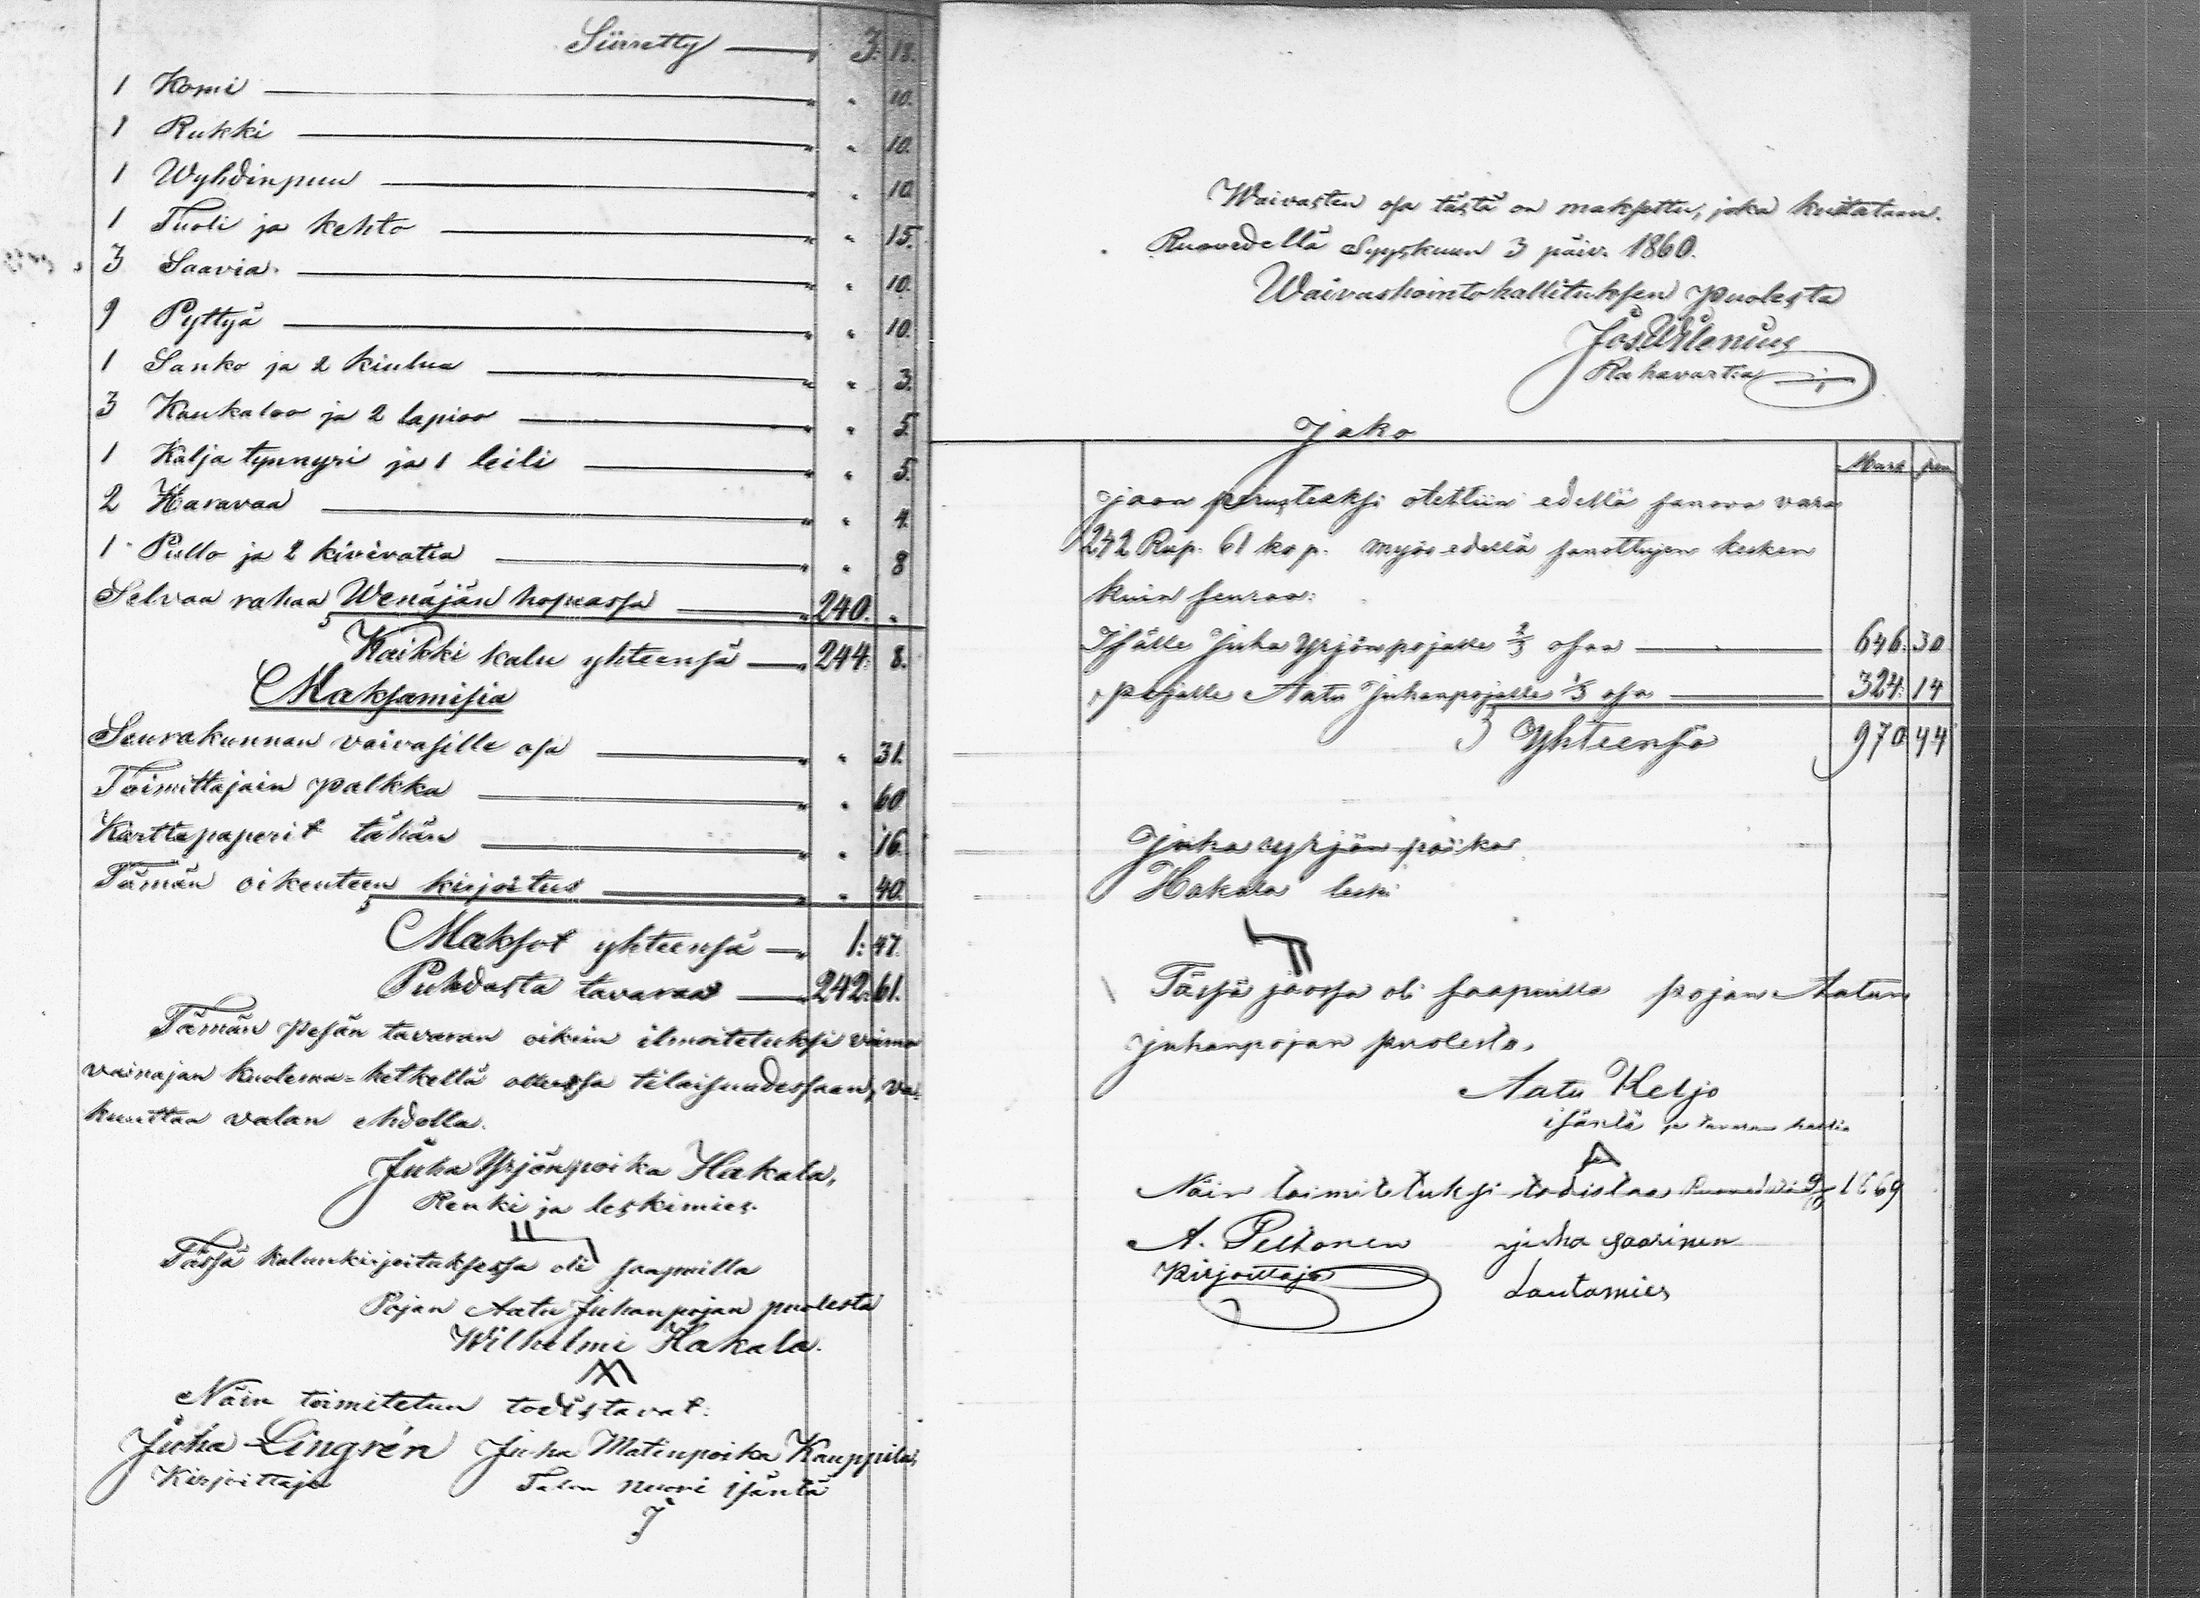 Siirretty — " 3: 18.
1 Komi — " " 10.
1 Rukki — " " 10.
1 Wyhdinpuu — " " 10
1 Tuoli ja kehto — " " 15.
3 Saavia. — " " 10.
9 Pyttyä — " " 10.
1 Sanko ja 2 kiulua — " " 3.
3 Kaukaloo ja 2 lapioo — " " 5.
1 Kaljatynnyri ja 1 leili — " " 5.
2 Haravaa — " " 4.
1 Pullo ja 2 kivivatia — " " 8
Selvaa rahaa Wenäjän hopeassa — " 240. "
Kaikki kalu yhteensä — " 244: 8.
Maksamisia
Seurakunnan vaivasille osa — " " 31.
Toimittajain palkka — " " 60
Karttapaperit tähän — " " 16.
Tämän oikeuteen kirjoitus — " " 40.
Maksot yhteensä — " 1: 47.
Puhdasta tavaraa — 242: 61.
Tämän pesän tavaran oikein ilmoitetuksi vaimo
vainajan kuolema=hetkellä ollessa tilaisuudessaan, va=
kuuttaa valan ehdolla.
Juha Yrjönpoika Hakala,
Renki ja leskimies.
Tässä kalunkirjoituksessa oli saapuilla
Pojan Aatu Juhanpojan puolesta
Wilhelmi Hakala.
Näin toimitetun todistavat:
Juha Lingrén Juha Matinpoika Kauppila,
Kirjoittaja Talon nuori isäntä
Waivasten osa tästä on maksettu, joka kuitataan.
Ruovedellä Syyskuun 3 päiv. 1860.
Waivashointohallituksen puolesta
Jos. Wilenius
Rahavartia
Jako
Mark pen
Jaon perusteeksi otettiin edellä sanova vara
242 Rup. 61 kop. myös edellä sanottujen kesken
kuin seuraa:
Isälle Juha Yrjönpojalle 2/3 osaa — 646. 30
" pojalle Aatu Juhanpojalle 1/3 osa — 324: 14
Yhteensä 970 44
Juha yrjön poika
Hakala leski
Tässä jaossa oli saapuilla pojan Aatun
juhanpojan puolesta,
Aatu Keljo
isäntä ja tavaran haltia
Näin toimitetuksi todistaa Ruovedellä 1869
A. Peltonen juha saarinen
Kirjoittaja Lautamies